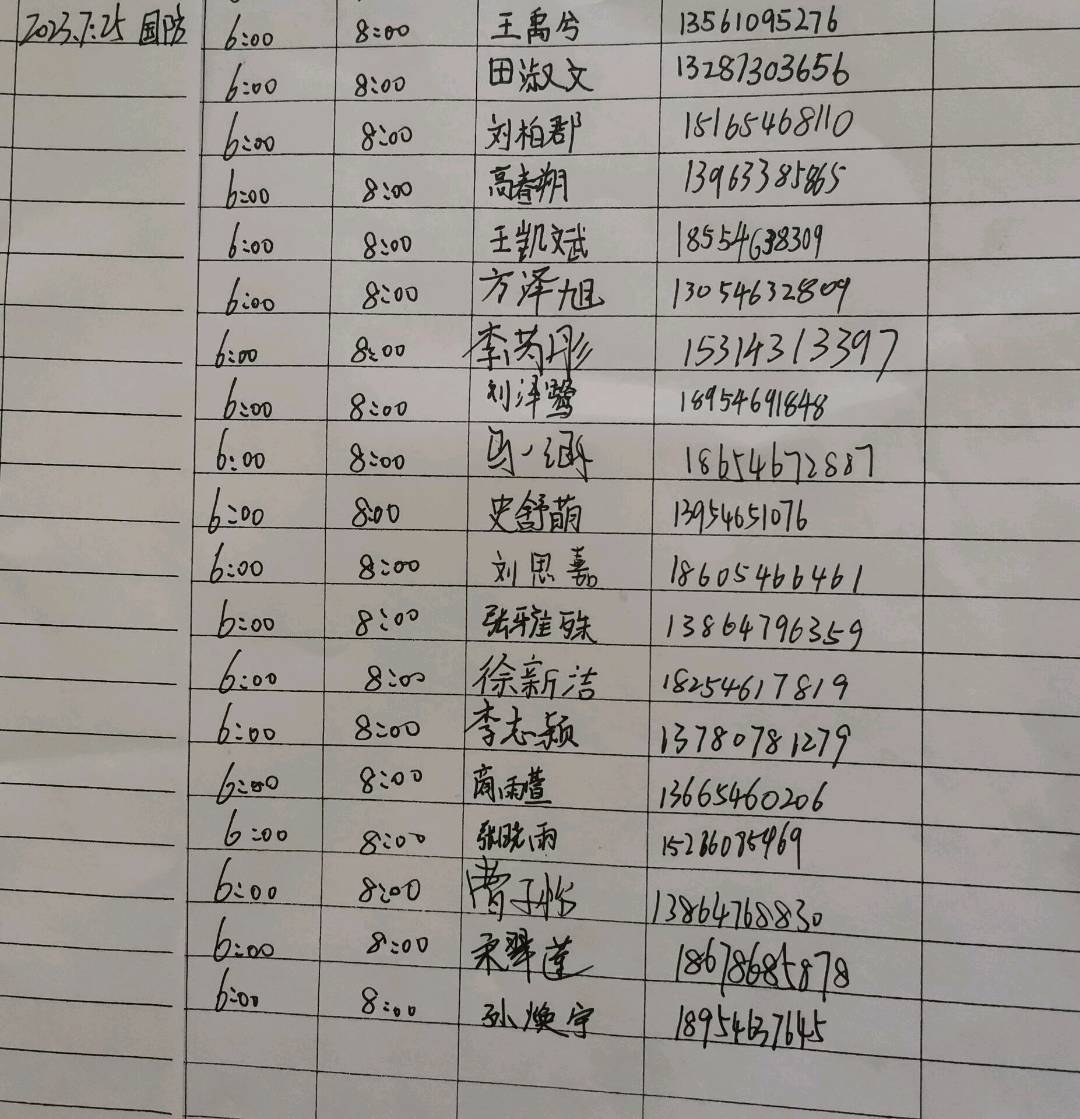 2023.7.25 国防 6:00 8:00 王禹兮 13561095276
6:00 8:00 田淑文 13287303656
6:00 8:00 刘柏郡 15165468110
6:00 8:00 高春朔 13963385865
6:00 8:00 王凯文斌 18554638309
6:00 8:00 方泽旭 13054632809
6:00 8:00 李芮彤 15314313397
6:00 8:00 刘泽鹭 18954691848
6:00 8:00 马一 18654672887
6:00 8:00 史舒萌 13954651076
6:00 8:00 刘思嘉 18605466461
6:00 8:00 张雅殊 13864796359
6:00 8:00 徐新洁 18254617819
6:00 8:00 李志颖 13780781279
6:00 8:00 商雨萱 13665460206
6:00 8:00 张晓雨 15266085969
6:00 8:00 曹子怡 13864768830
6:00 8:00 莲 18678685878
6:00 8:00 孙焕宇 18954637645